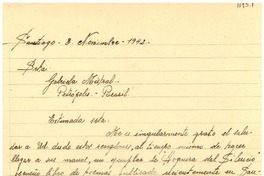 Santiago - 3. Noviembre - 1942.
Srta
Gabriela Mistral.
Petrópolis - Brasil.
Estimada Srta:
Me es singularmente grato el salu-
dar a Ud desde estos renglones, al tiempo mismo de hacer
llegar a sus manos, un ejemplar de "Hoguera del Silencio"
pequeño libro de poemas publicado recientemente en San-